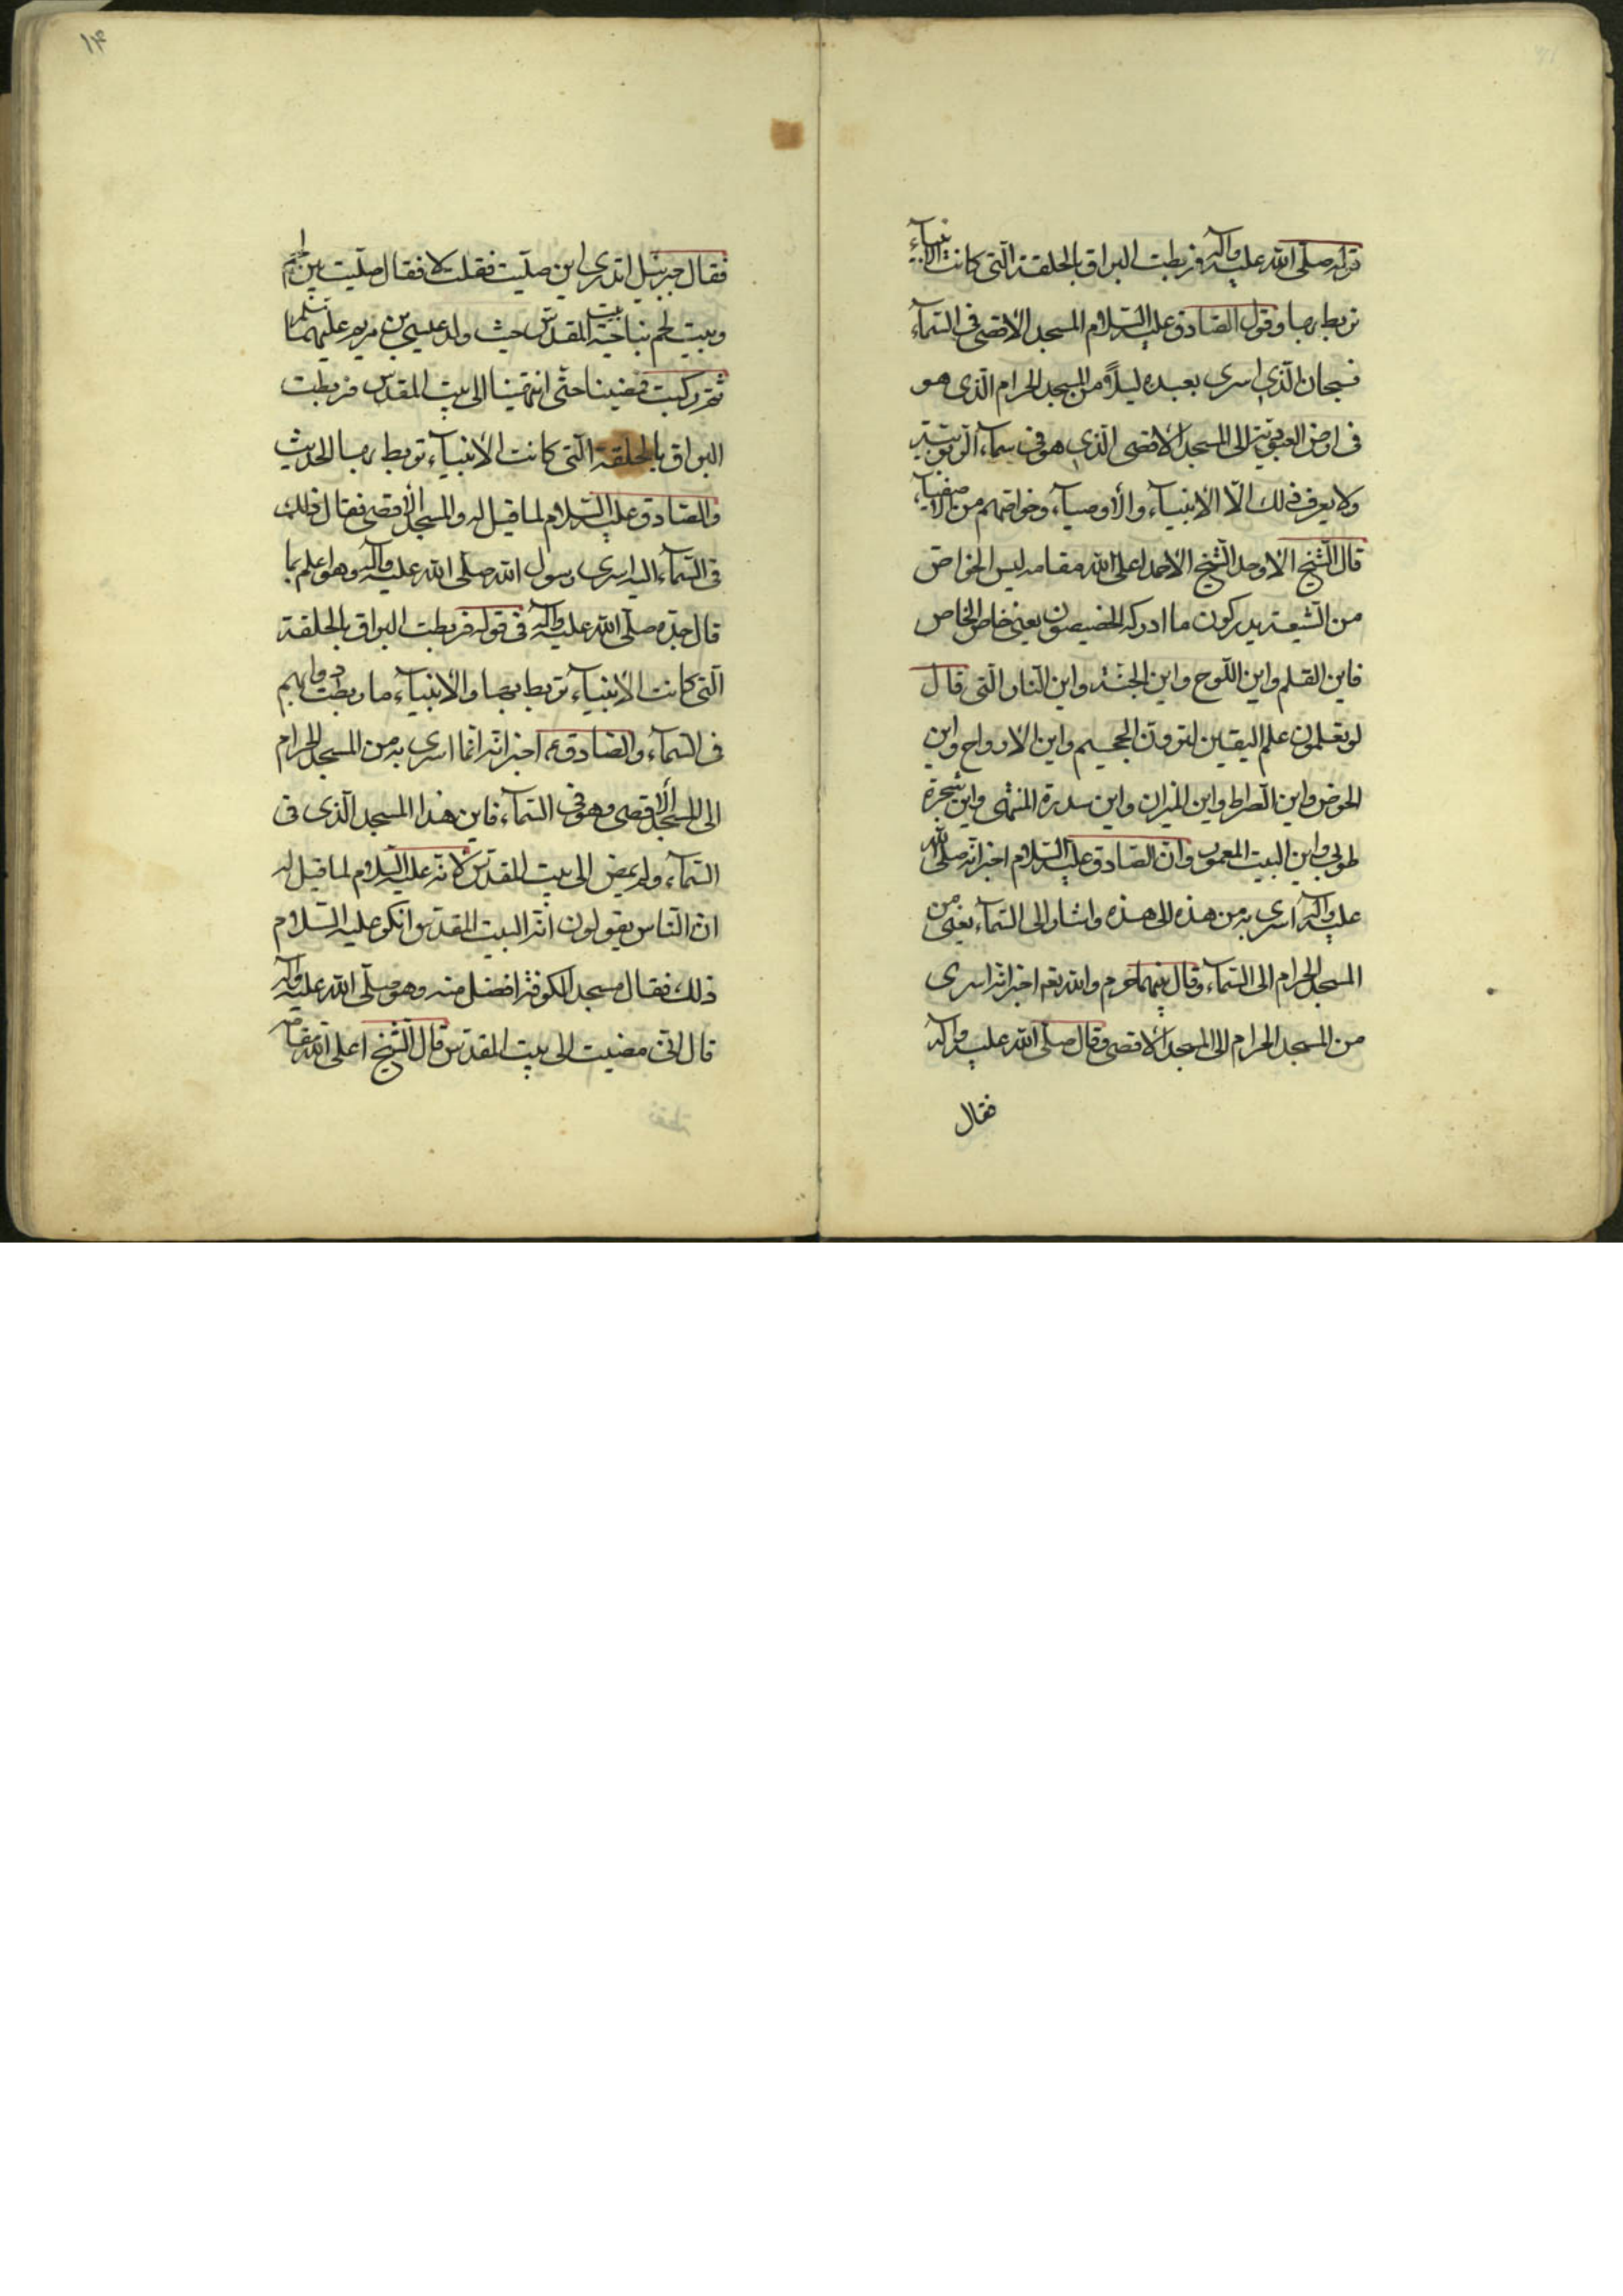 قوله صلّى الله عليه وآله فربطت البراق بالحلقة الّتي كانت الأنبياء
تربط بها وقول الصّادق عليه السّلام المسجد الاقصى في السّماء
فسبحان الّذي اسرى بعبده ليلاً من المسجد الحرام الّذي هو
في ارض العبوديّة الى المسجد الاقصى الّذي هو في سماء الرّبوبيّة
ولا يعرف ذلك الّا الانبياء والأوصياء وخواصّهم من الأصفياء
قال الشّيخ الاوحد الشّيخ الاحمد اعلى الله مقامه ليس الخواصّ
من الشّيعة يدركون ما ادركه الخصيصون يعني خاصّ الخاص
فاين القلم واين اللّوح واين الجنّة واين النّار الّتي قال
لو تعلمون علم اليقين لترونّ الجحيم واين الارواح واين
الحوض واين الصّراط واين الميزان واين سدرة المنتهى واين شجرة
طوبى واين البيت المعمور وانّ الصّادق عليه السّلام اخبر انّه صلّى الله
عليه وآله اسرى به من هذه الى هذه واشار الى السّماء يعني من
المسجد الحرام الى السّماء وقال بينهما حرم والله تعم اخبر انّه اسرى
من المسجد الحرام الى المسجد الاقصى وقال صلّى الله عليه وآله
فقال
١٤
فقال جبرئيل اتدري اين صلّيت فقلت لا فقال صلّيت ببيت لحم
وبيت لحم بناحية بيت المقدّس حيث ولد عيسى بن مريم عليهما السّلم
ثمّ ركبت فمضينا حتّى انتهينا الى بيت المقدّس فربطت
البراق بالحلقة الّتي كانت الأنبياء تربط بها الحديث
والصّادق عليه السّلام لما قيل له والمسجد الأقصى فقال ذلك
في السّماء اليه اسرى رسول الله صلّى الله عليه وآله وهو اعلم بما
قال جدّه صلّى الله عليه وآله في قوله فربطت البراق بالحلقة
الّتي كانت الأنبياء تربط بها والأنبياء ما ربطت دوابهم
في السّماء والصّادق عم اخبر انّه انّما اسرى به من المسجد الحرام
الى المسجد الأقصى وهو في السّماء فاين هذا المسجد الّذي في
السّماء ولم يمض الى بيت المقدّس لانّه عليه السّلام لما قيل له
ان النّاس يقولون انّه البيت المقدّس انكر عليه السّلام
ذلك فقال مسجد الكوفة افضل منه وهو صلّى الله عليه وآله
قال انّي مضيت الى بيت المقدّس قال الشّيخ اعلى الله مقامه